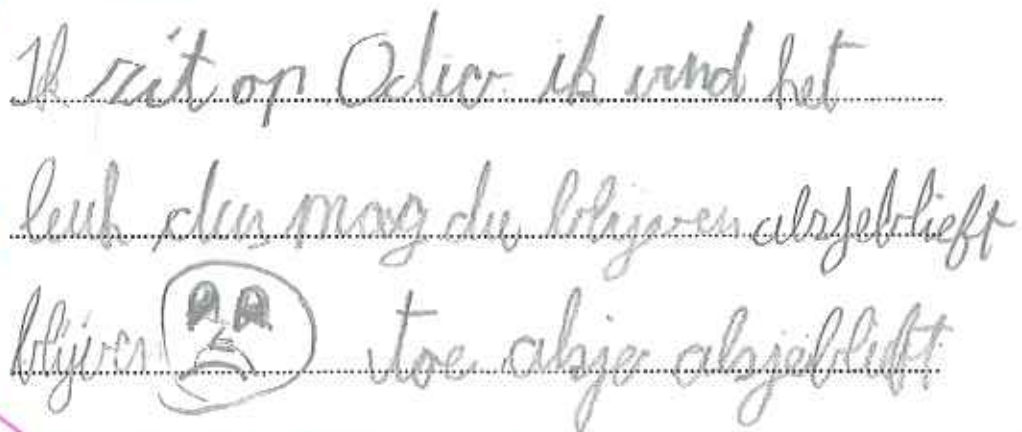 Ik zit op Odeio. ik vind het
leuk dus mag die blijven alsjeblieft
blijven toe alsje alsjeblieft!